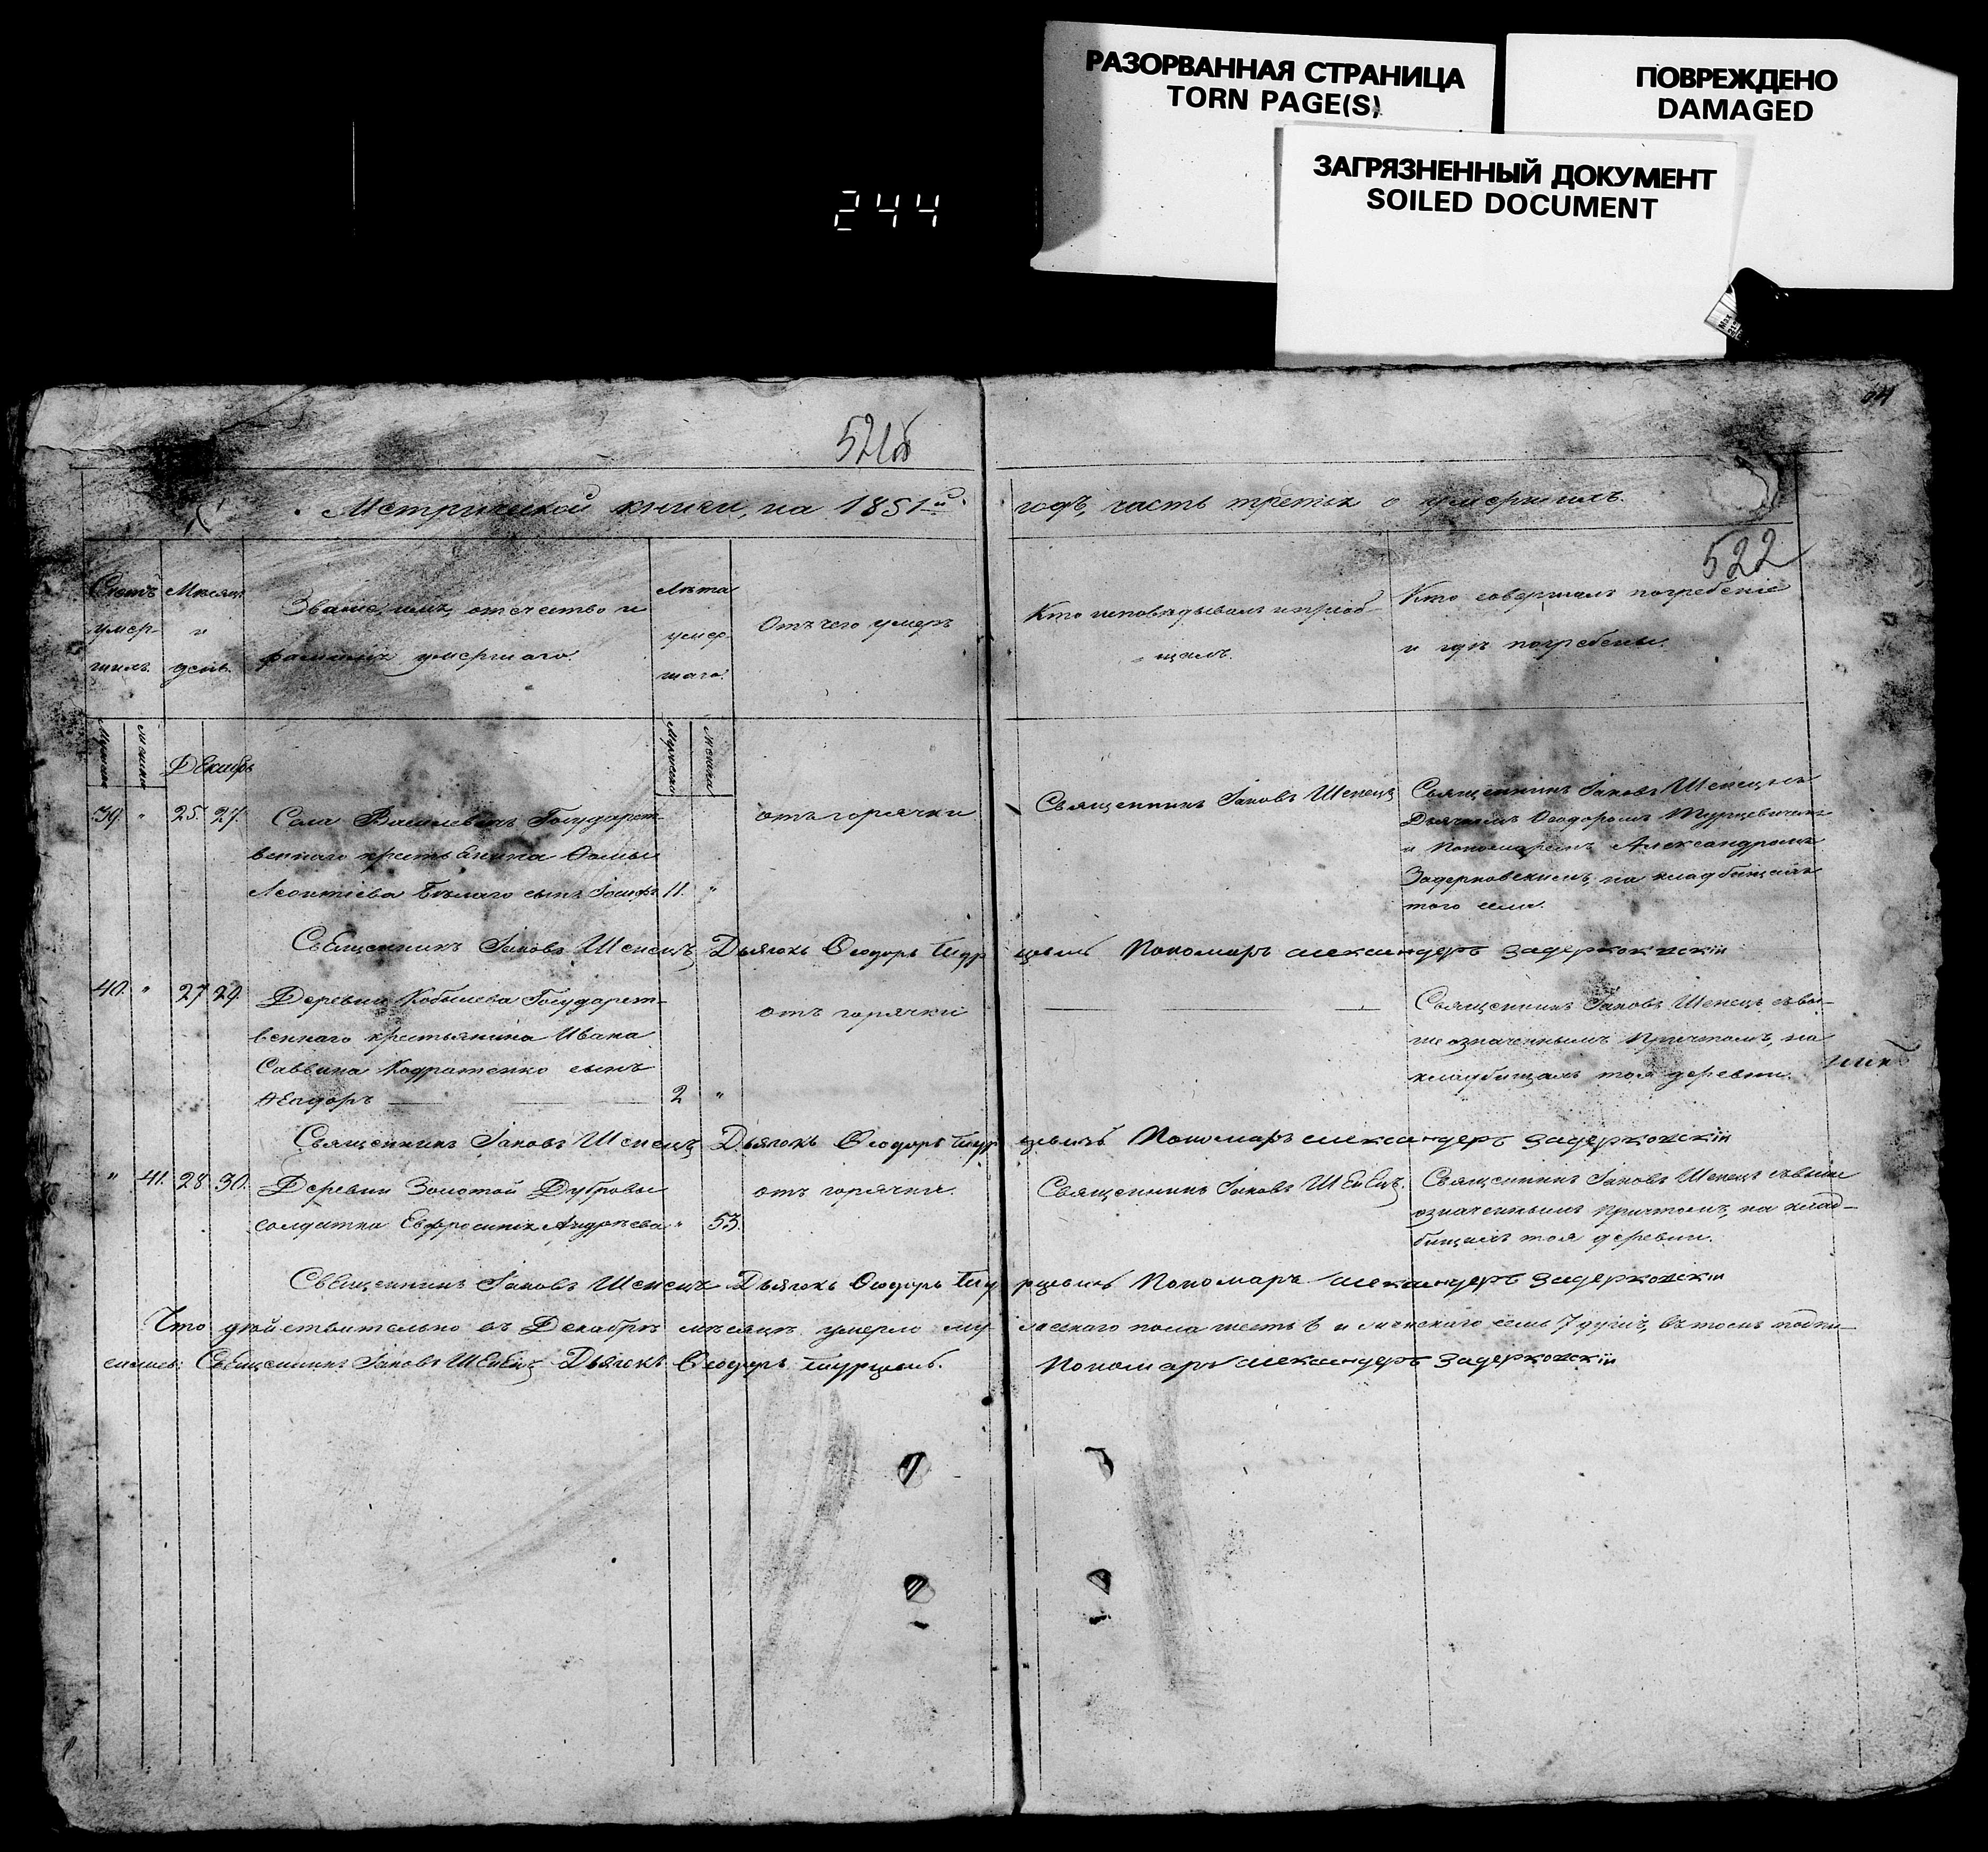 РАЗОРВАННАЯ СТРАНИЦА
TORN PAGE(S)
ПОВРЕЖДЕНО
DAMAGED
ЗАГРЯЗНЕННЫЙ ДОКУМЕНТ
SOILED DOCUMENT
244
521б
Метрической книги, на 1851й годъ, часть третья о умершихъ.
522
Счетъ умер- шихъ.
Мѣсяцъ и день.
Званіе, имя, отечество и фамилія умершаго.
Лѣта умер- шаго.
Отъ чего умеръ
Кто исповѣдывалъ и пріоб- щалъ.
Кто совершалъ погребеніе и гдѣ погребены.
Мужска
Женска
Декабрь
Мужска
Женска
39. " 25. 27.
Села Василевичъ Государст-
веннаго крестьянина Ѳомы
Леонтіева Бѣлаго сынъ Іосифъ 11. "
отъ горячки
Священникъ Іаковъ Шепецъ
Священникъ Іаковъ Шепецъ съ
Дьячкомъ Ѳеодоромъ Турцевичемъ
и Пономаремъ Александромъ
Задерковскимъ, на кладбищахъ
того села.
Священникъ Іаковъ Шепецъ Дьячокъ Ѳеодоръ Пономаръ Александеръ Задерковскій
40. " 27 29
Деревни Кобылева Государст-
веннаго крестьянина Ивана
Саввина Кодратенко сынъ
Ѳеодоръ 2 "
отъ горячки
Священникъ Іаковъ Шепецъ съ вы-
ше означеннымъ Причтомъ, на
кладбищахъ тоя деревни.
Священникъ Іаковъ Шепецъ Дьячокъ Ѳеодоръ Пономаръ Александеръ Задерковскій
" 41. 28 30.
Деревни Золотой Дубровы
солдатка Евфросинія Андреева " 53.
отъ горячки.
Священникъ Іаковъ Шепецъ.
Священникъ Іаковъ Шепецъ съ выше
означеннымъ Причтомъ, на клад-
бищахъ тоя деревни.
Священникъ Іаковъ Шепецъ Дьячокъ Ѳеодоръ Пономаръ Александеръ Задерковскій
Что дѣйствительно въ Декабрѣ мѣсяцѣ умерло му- жескаго пола шесть 6 и женскаго семь 7 душъ, въ томъ подпи-
суемся: Священникъ Іаковъ Шепецъ Дьячокъ Ѳеодоръ Пономаръ Александеръ Задерковскій